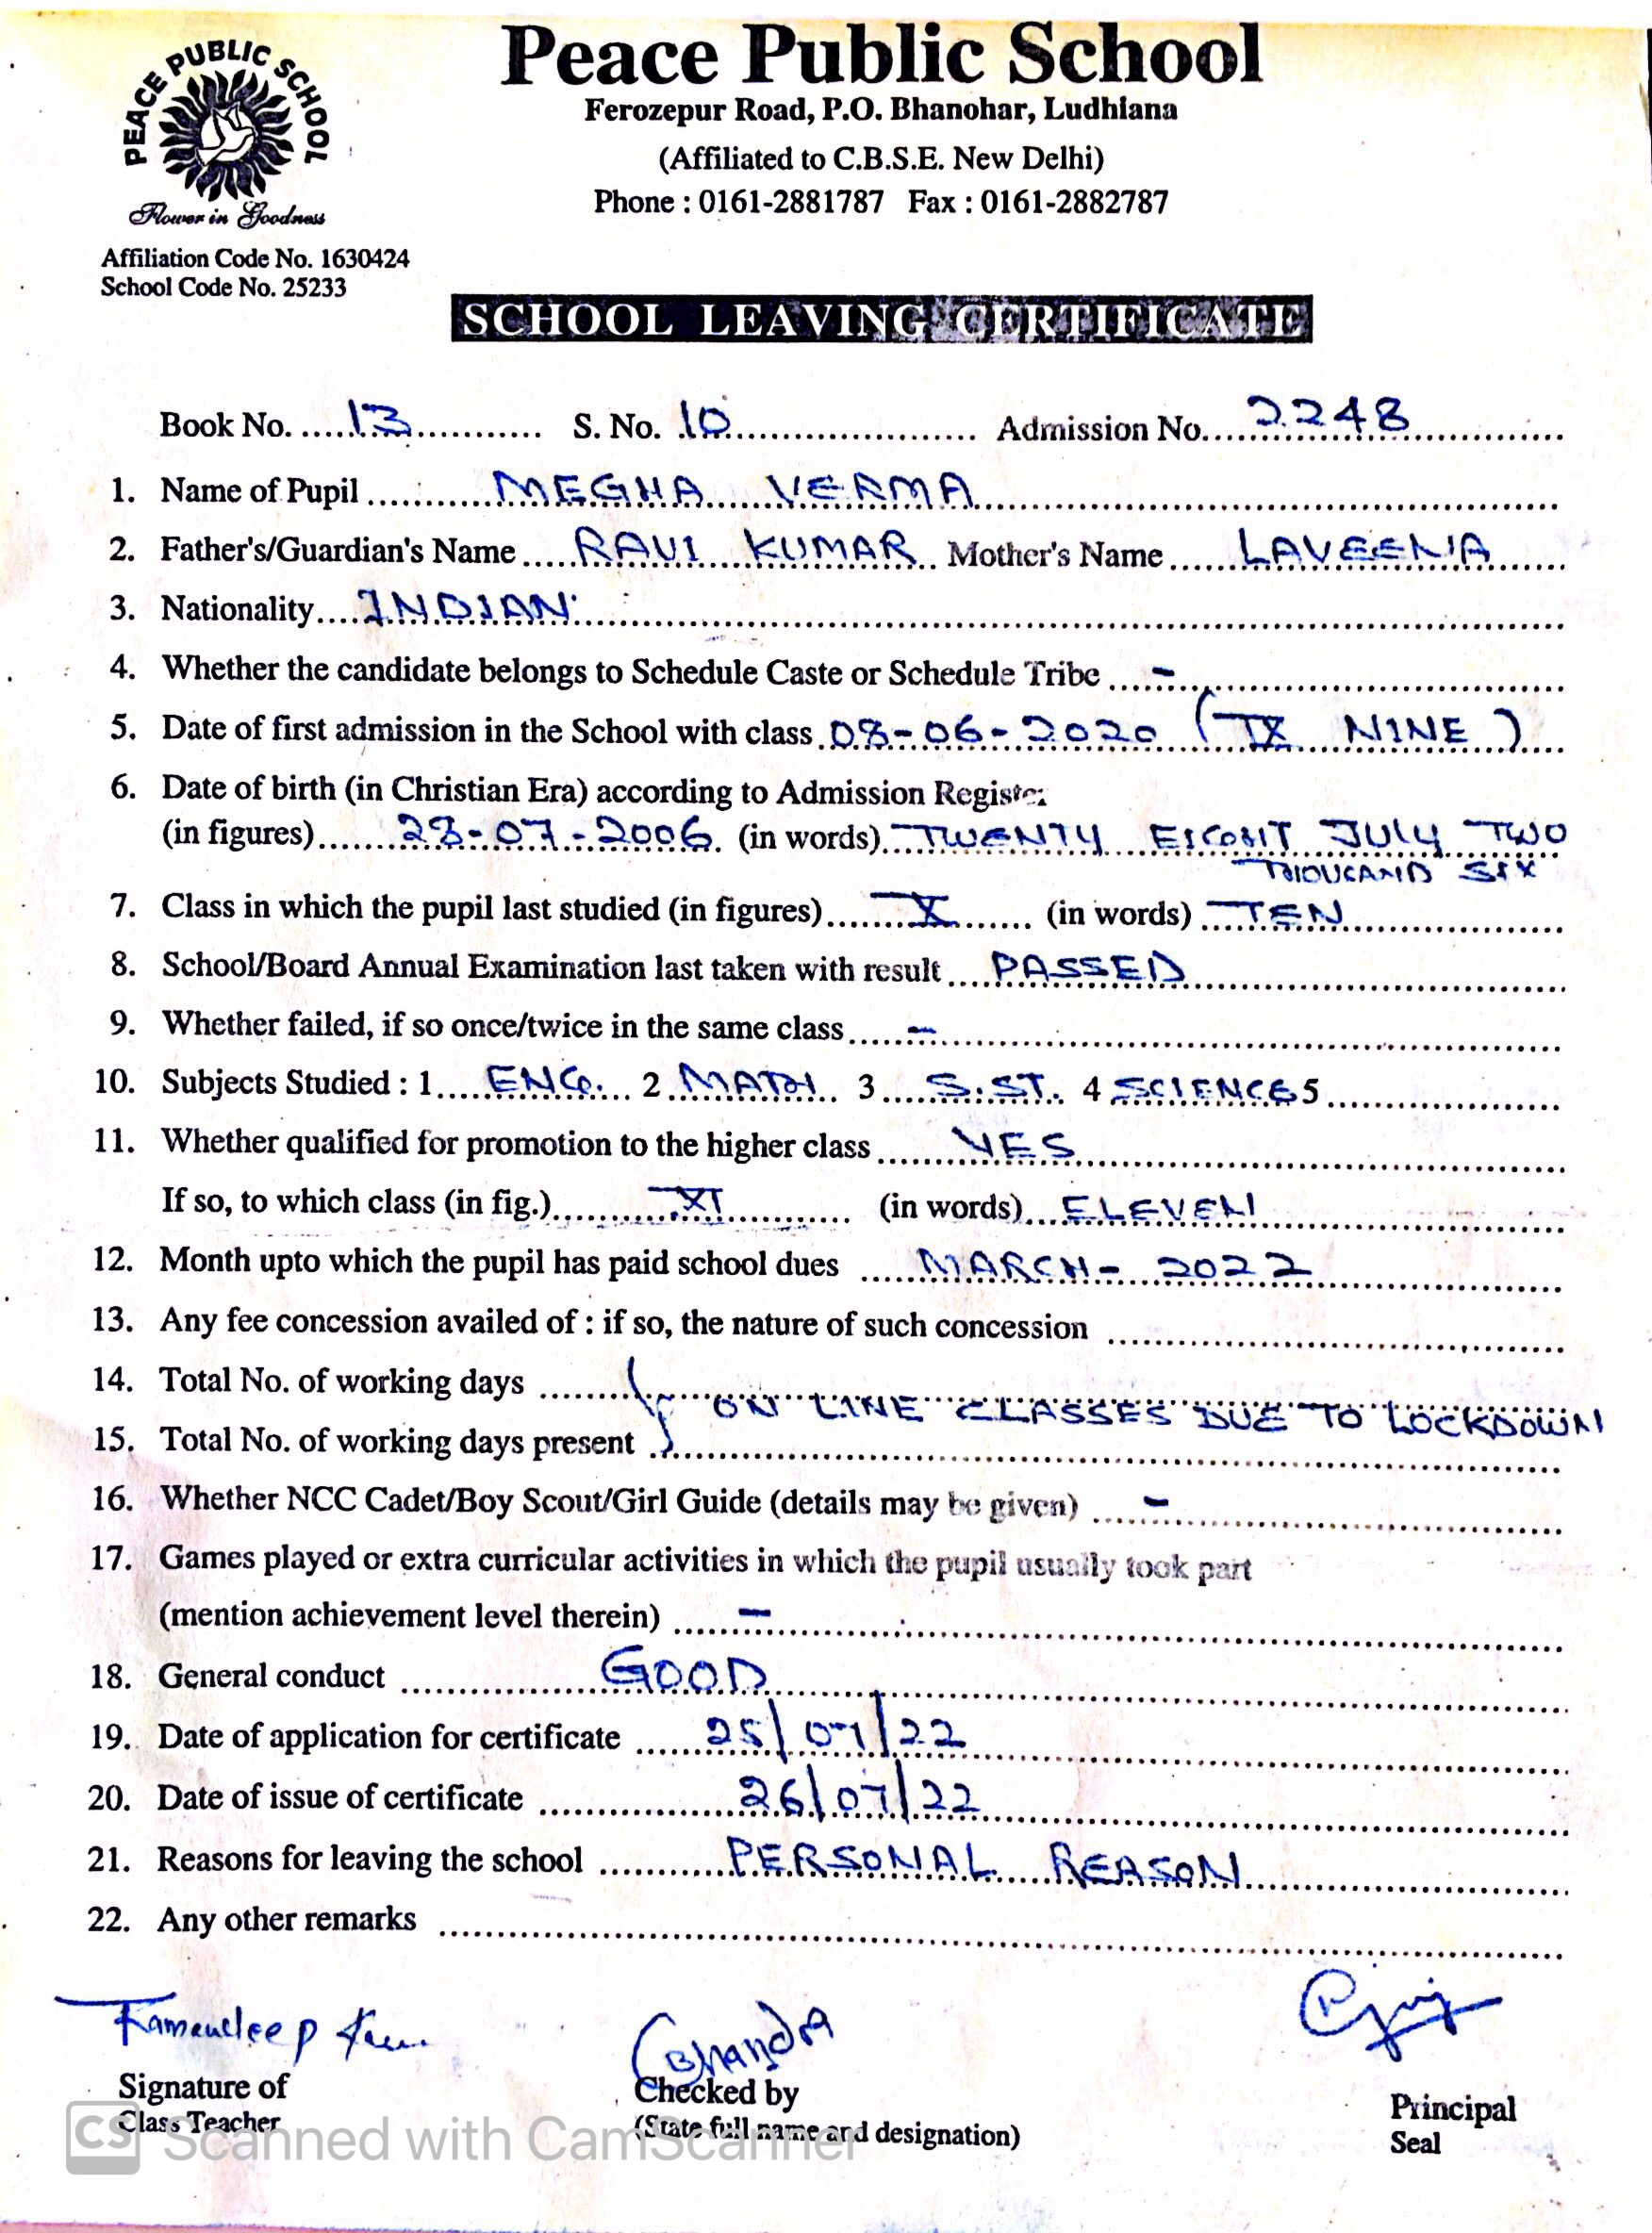 PEACE PUBLIC SCHOOL
Flower in Goodness
Affiliation Code No. 1630424
School Code No. 25233
Peace Public School
Ferozepur Road, P.O. Bhanohar, Ludhiana
(Affiliated to C.B.S.E. New Delhi)
Phone : 0161-2881787 Fax : 0161-2882787
SCHOOL LEAVING CERTIFICATE
Book No. 13 S. No. 10 Admission No. 2248
1. Name of Pupil MEGHA VERMA
2. Father's/Guardian's Name RAVI KUMAR Mother's Name LAVEENA
3. Nationality INDIAN
4. Whether the candidate belongs to Schedule Caste or Schedule Tribe -
5. Date of first admission in the School with class 08-06-2020 (IX NINE)
6. Date of birth (in Christian Era) according to Admission Register
(in figures) 28-07-2006 (in words) TWENTY EIGHT JULY TWO
THOUSAND SIX
7. Class in which the pupil last studied (in figures) X (in words) TEN
8. School/Board Annual Examination last taken with result PASSED
9. Whether failed, if so once/twice in the same class -
10. Subjects Studied : 1 ENG. 2 MATH 3 S.ST. 4 SCIENCE 5
11. Whether qualified for promotion to the higher class YES
If so, to which class (in fig.) XI (in words) ELEVEN
12. Month upto which the pupil has paid school dues MARCH - 2022
13. Any fee concession availed of : if so, the nature of such concession
14. Total No. of working days
ON LINE CLASSES DUE TO LOCKDOWN
15. Total No. of working days present
16. Whether NCC Cadet/Boy Scout/Girl Guide (details may be given) -
17. Games played or extra curricular activities in which the pupil usually took part
(mention achievement level therein) -
18. General conduct GOOD
19. Date of application for certificate 25/07/22
20. Date of issue of certificate 26/07/22
21. Reasons for leaving the school PERSONAL REASON
22. Any other remarks
Signature of
Class Teacher
Checked by
(State full name and designation)
Principal
Seal
CS Scanned with CamScanner